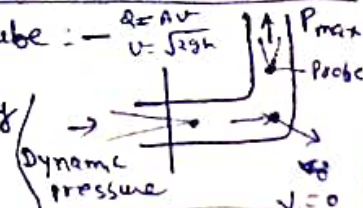 ube :- Q = AV
V = √2gh
Pmax
Probe
Dynamic
pressure
V = 0